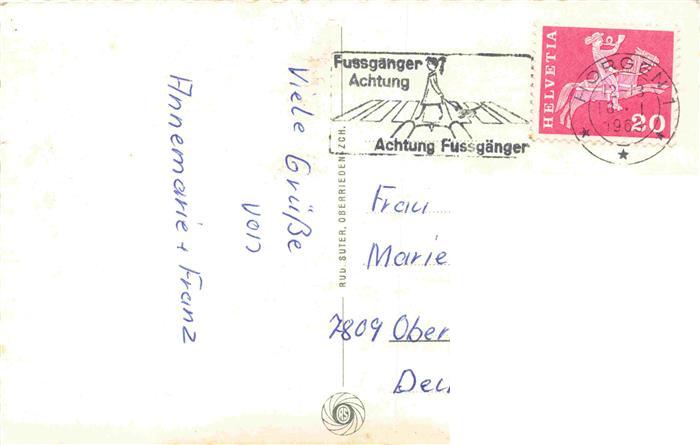 Viele Grüße
von
Annemarie + Franz
RUD. SUTER, OBERRIEDEN/ZCH.
Fussgänger
Achtung
Achtung Fussgänger
HELVETIA
20
HORGEN 1
Frau
Marie
7809 Ober
Deu